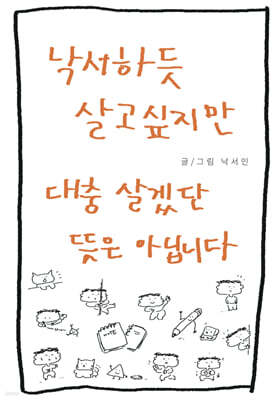 낙서하듯
살고싶지만
글/그림 낙서인
대충 살겠단
뜻은 아닙니다